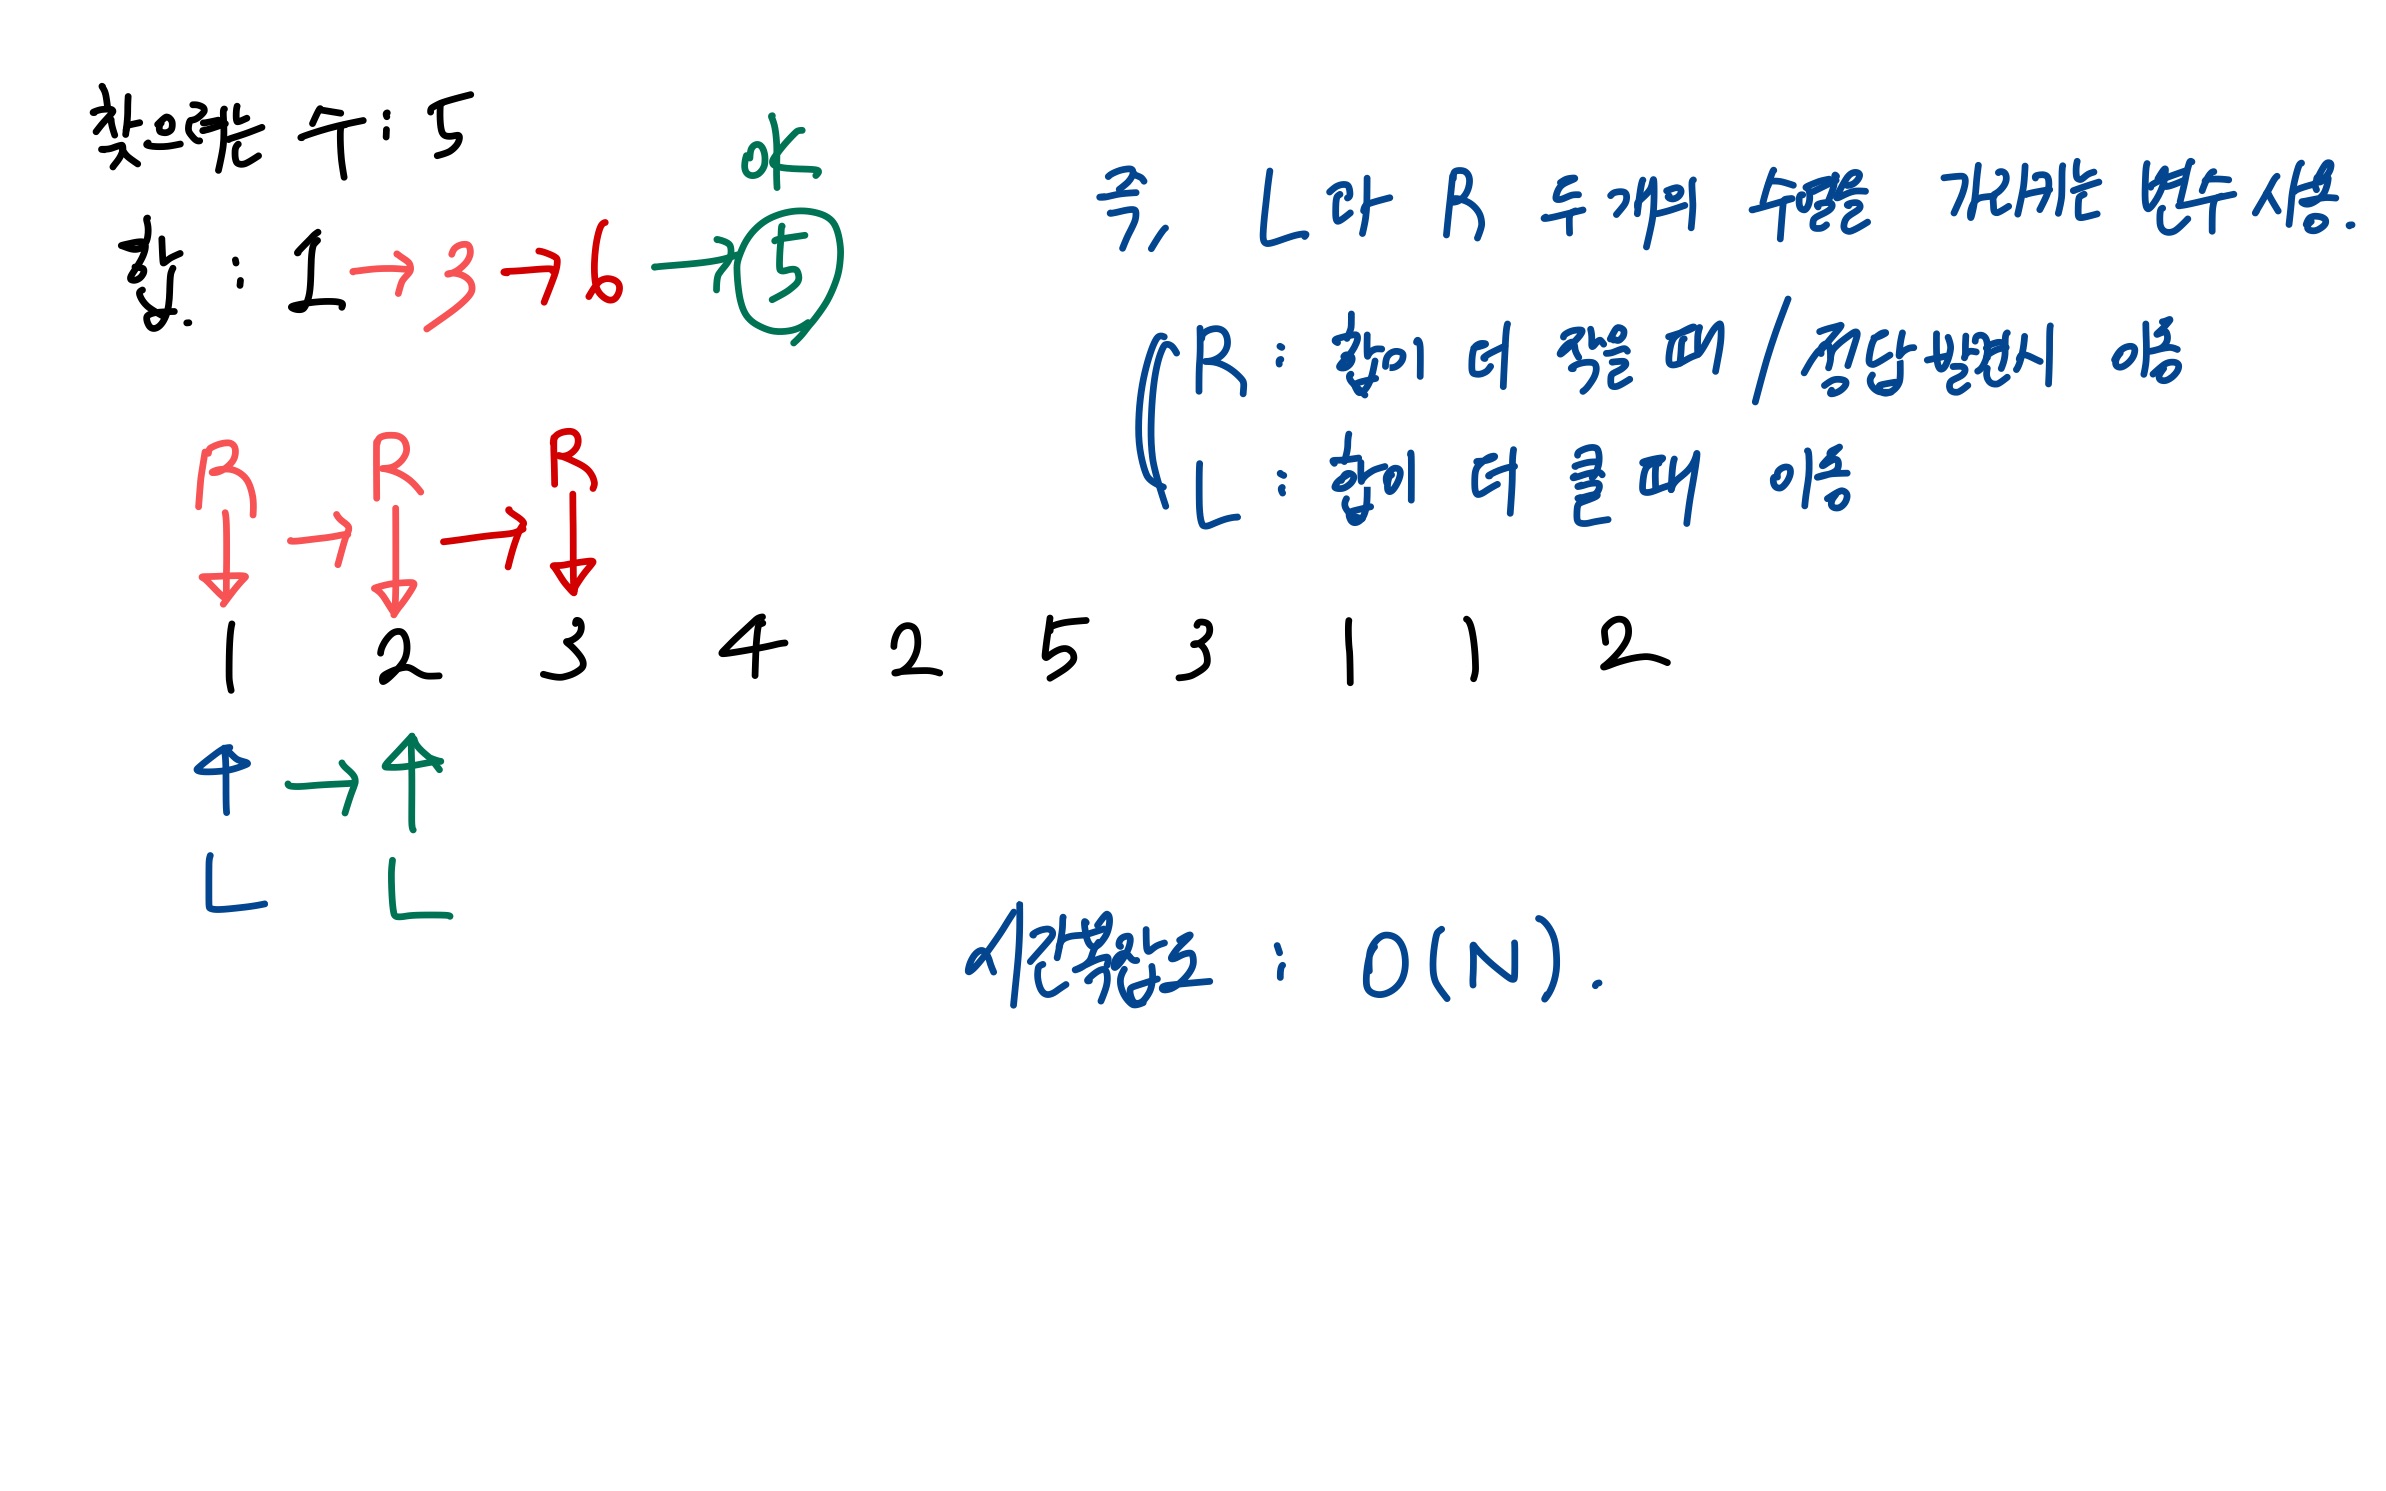 찾으려는 수 : 5
합 : 1 → 3 → 6 → 5
ok
즉, L과 R 두 개의 수를 가지는 변수 생성.
R : 합이 더 작을 때 / 정답 발생시 이동
L : 합이 더 클 때 이동
R → R → R
1 2 3 4 2 5 3 1 1 2
L → L
시간복잡도 : O(N).